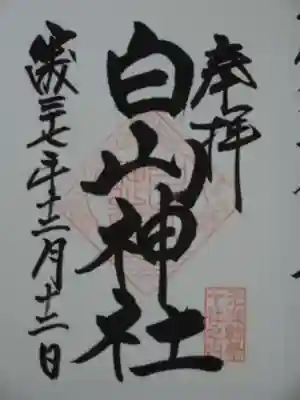 奉拝
白山神社
平成二七年十二月十二日